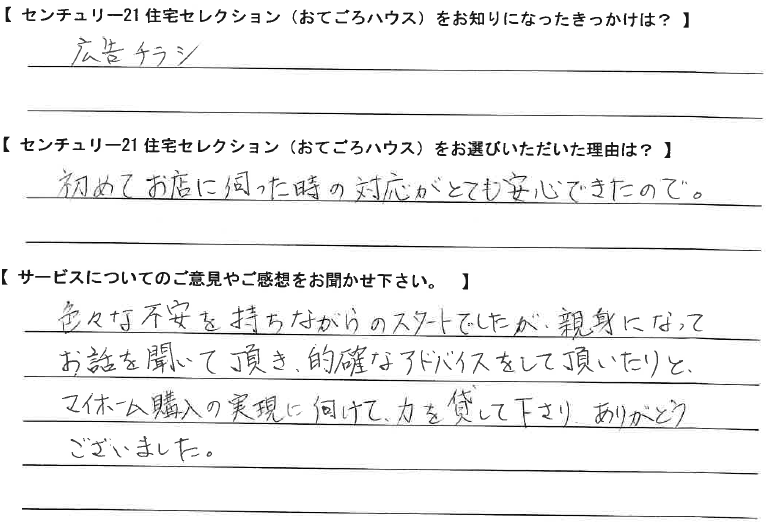 【 センチュリー21 住宅セレクション（おてごろハウス）をお知りになったきっかけは？ 】
広告チラシ
【 センチュリー21 住宅セレクション（おてごろハウス）をお選びいただいた理由は？ 】
初めてお店に伺った時の対応がとても安心できたので。
【 サービスについてのご意見やご感想をお聞かせ下さい。 】
色々な不安を持ちながらのスタートでしたが、親身になって
お話を聞いて頂き、的確なアドバイスをして頂いたりと、
マイホーム購入の実現に向けて、力を貸して下さり、ありがとう
ございました。